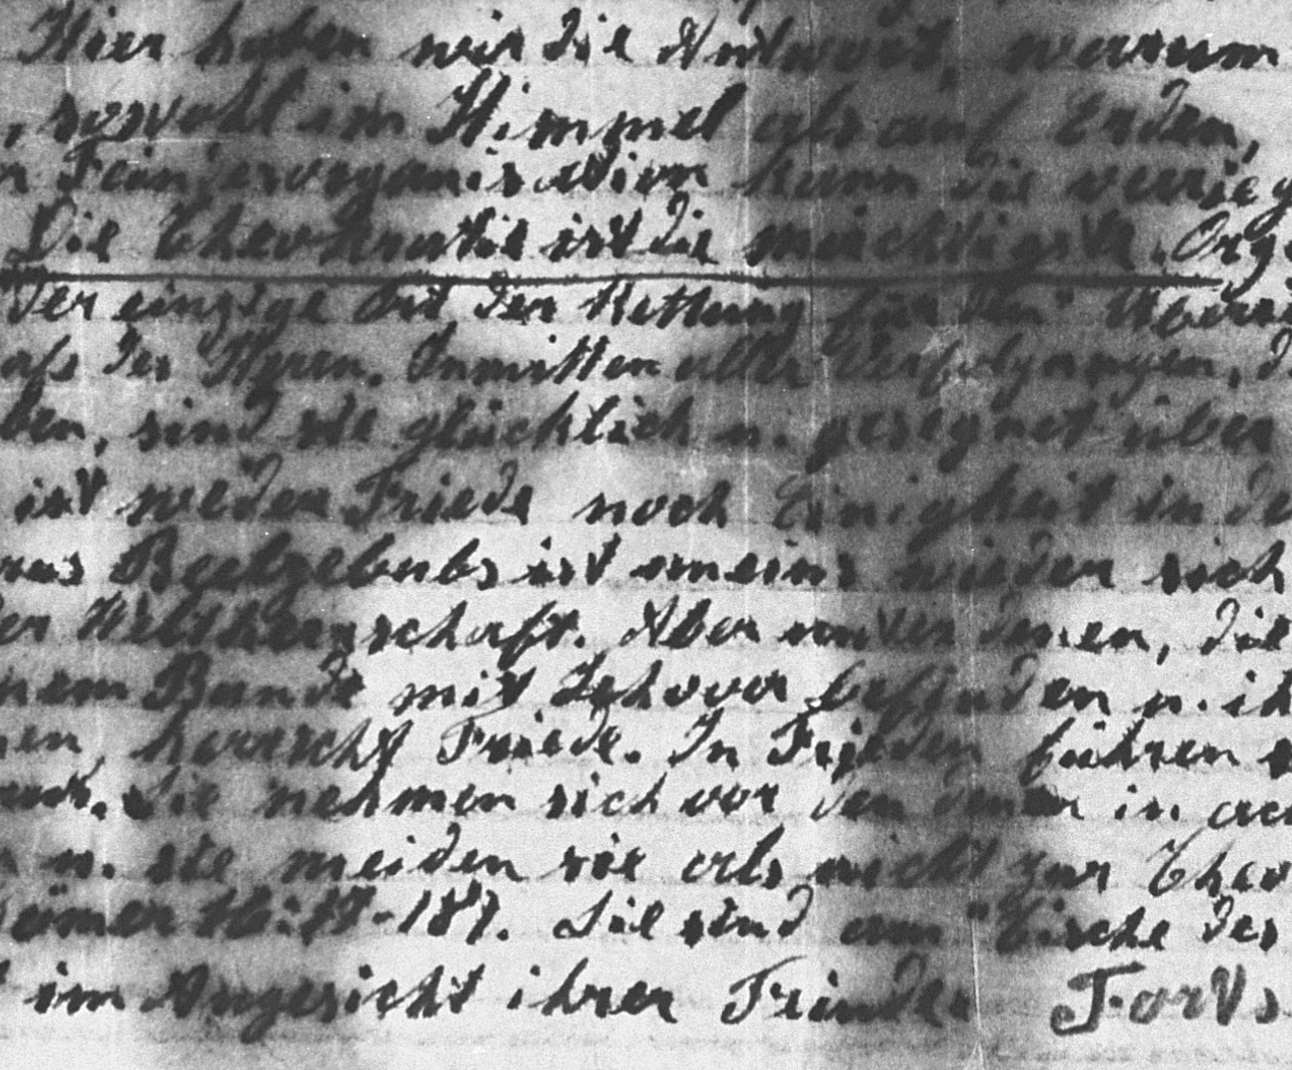 Hier haben wir die Antwort, warum
, sowohl im Himmel als auf Erden,
Die Theokratie ist die mächtigste Orga
der einzige Ort der Rettung für den Überre
des Herrn. Inmitten aller Verfolgungen, d
ben, sind sie glücklich u. gesegnet über
ist weder Friede noch Einigkeit in de
Beelzebubs ist uneins wieder sich
er Weltherrschaft. Aber unter denen, die
nem Bunde mit Jehova befinden u. ih
nen, herrscht Friede. In Frieden führen s
Sie nehmen sich vor den denen in ac
u. sie meiden sie als nicht zur Theo
ömer 16:17-18). Sie sind am "Tische des
im Angesicht ihrer Feinde. Forts